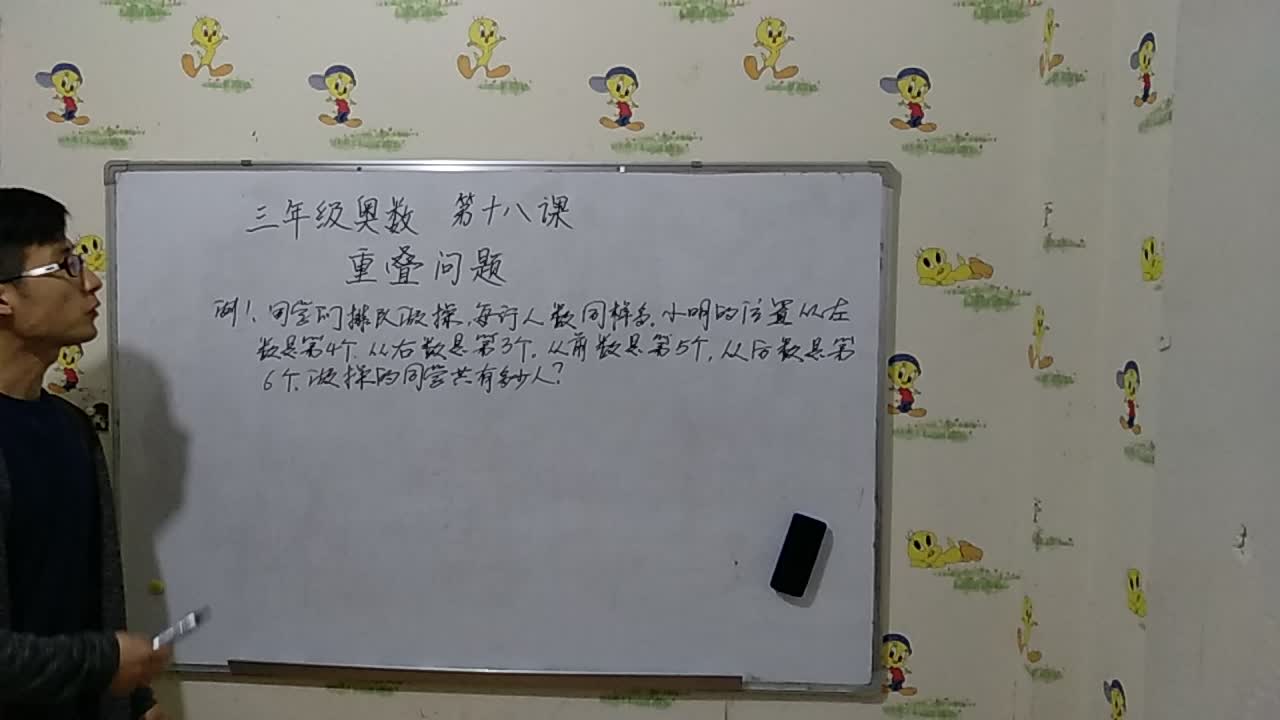 三年级奥数 第十八课
重叠问题
例1、同学们排队做操,每行人数同样多,小明的位置从左
数是第4个,从右数是第3个,从前数是第5个,从后数是第
6个,做操的同学共有多少人?